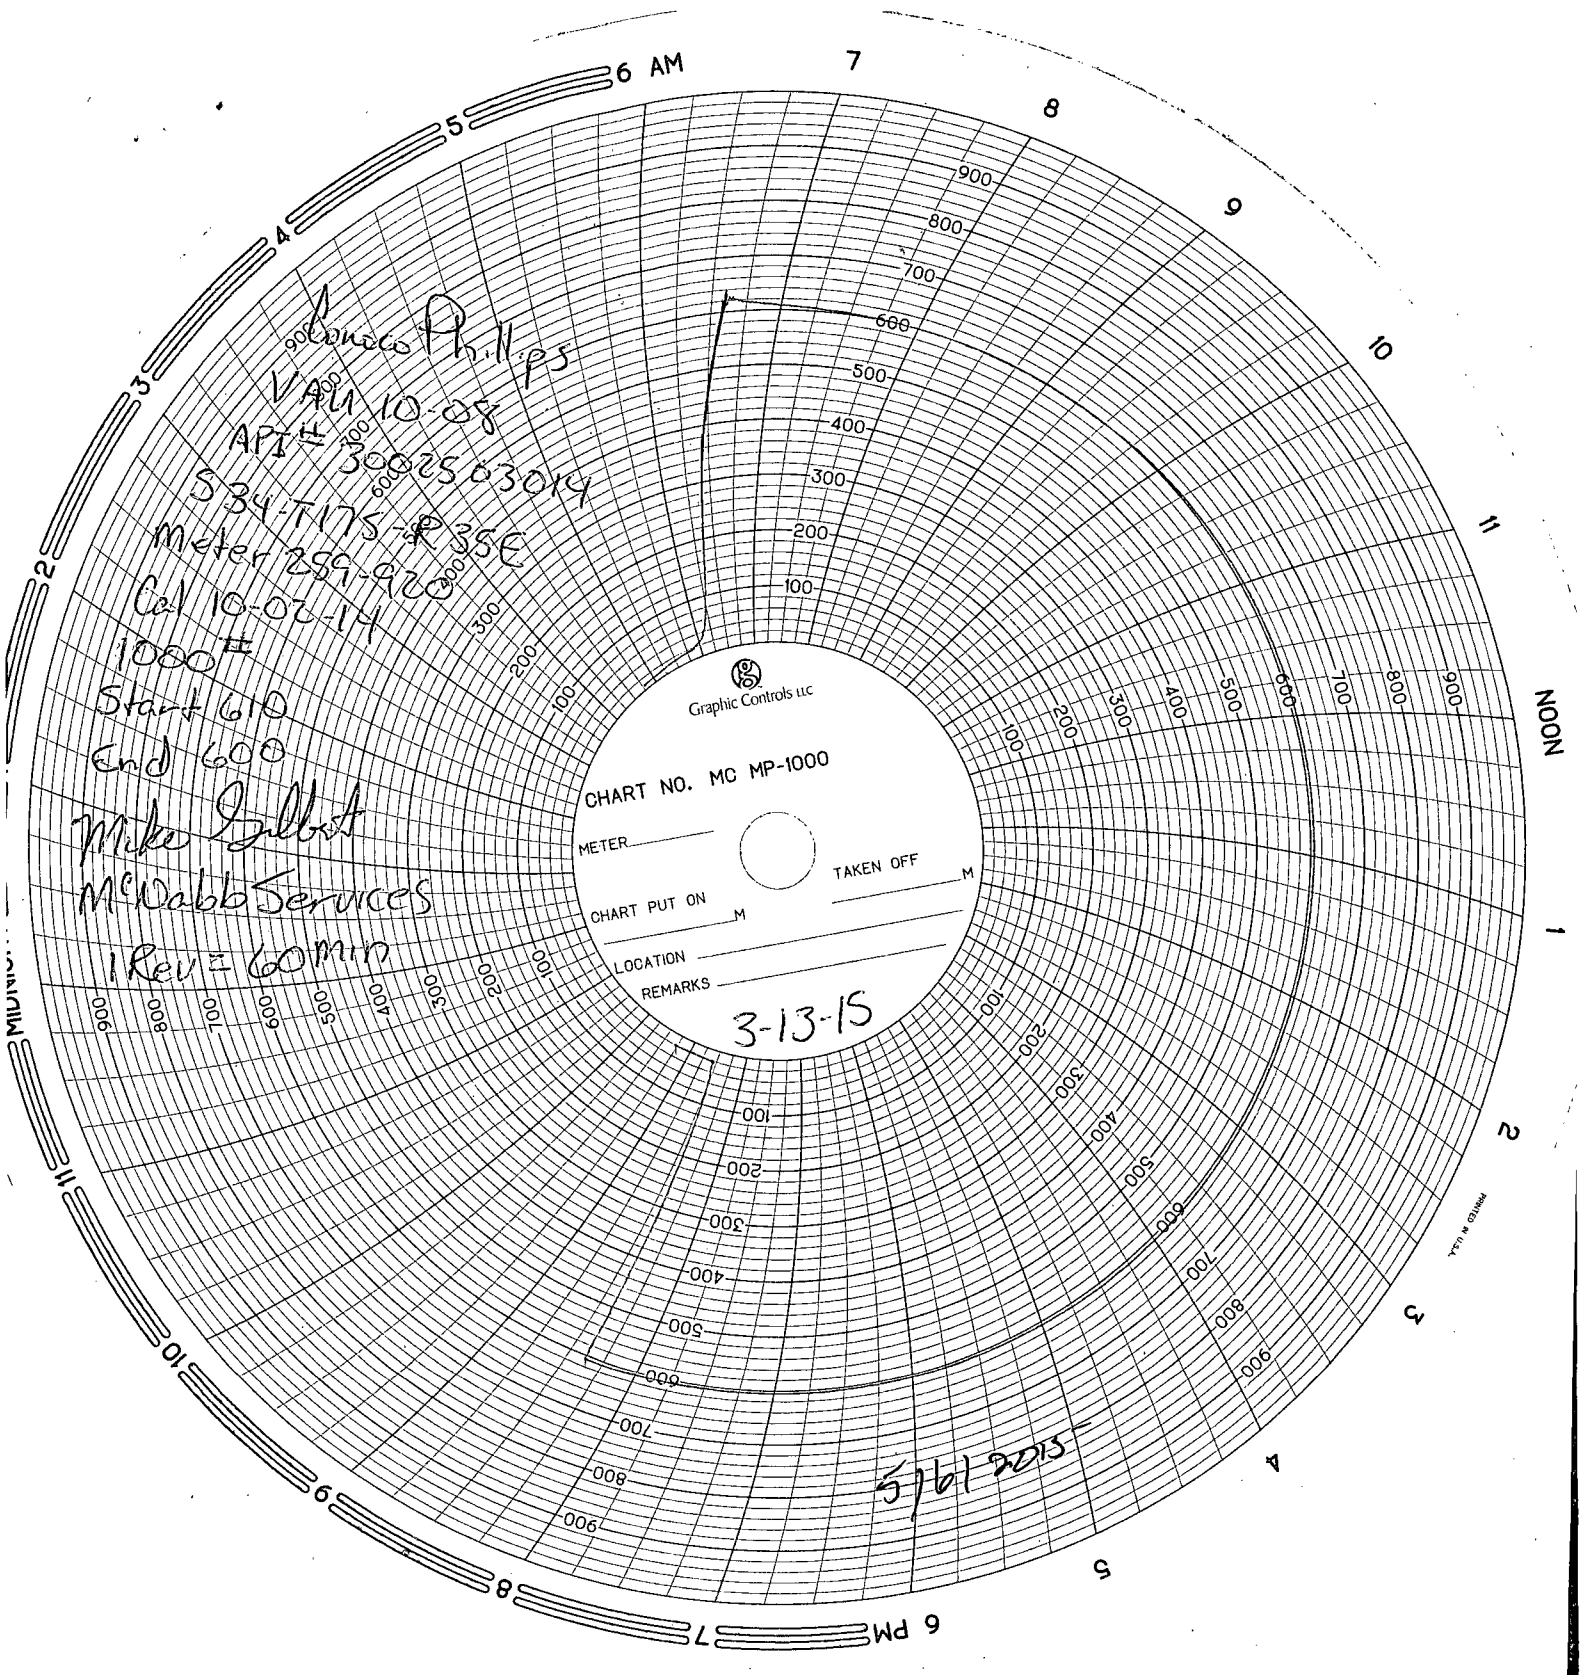 6 AM
7
8
9
10
11
NOON
1
2
3
4
5
6 PM
7
8
9
10
11
MIDNIGHT
2
3
4
5
900
800
700
600
500
400
300
200
100
100
200
300
400
500
600
700
800
900
100
200
300
400
500
600
700
800
900
100
200
300
400
500
600
700
800
900
900
800
700
600
500
400
300
200
100
900
700
600
400
300
200
100
Conoco Phillips
10-08
API # 3002503014
S 34-T17S-R 35E
Meter 259-920
Cal 10-02-14
1000 #
Start 610
End 600
Mike Gilbert
McNabb Services
1 Rev = 60 min
Graphic Controls LLC
CHART NO. MC MP-1000
METER
CHART PUT ON
M
TAKEN OFF
M
LOCATION
REMARKS
3-13-15
5/6/2015
PRINTED IN U.S.A.